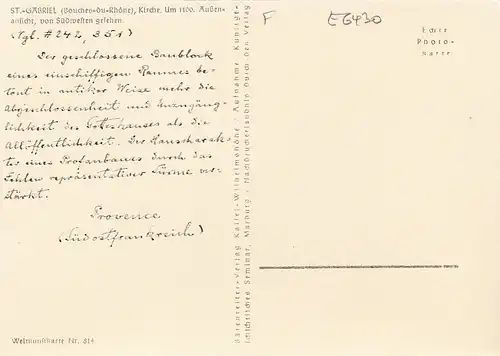 ST.-GABRIEL (Bouches-du-Rhône), Kirche. Um 1100. Außen-
ansicht, von Südwesten gesehen.
(Vgl. #242, 351)
Der geschlossene Baublock
eines einschiffigen Raumes be-
tont in antiker Weise mehr die
Abgeschlossenheit und Unzugäng-
lichkeit des Gotteshauses als die
Allöffentlichkeit. Der Hauscharak-
ter eines Profanbaues durch das
Fehlen repräsentativer Türme ver-
stärkt.
Provence
(Südostfrankreich)
Weltkunstkarte Nr. 814
Bärenreiter-Verlag Kassel-Wilhelmshöhe · Aufnahme: Kunstge-
schichtliches Seminar, Marburg · Nachdruckerlaubnis durch den Verlag
F
E6430
Echte
Photo-
karte